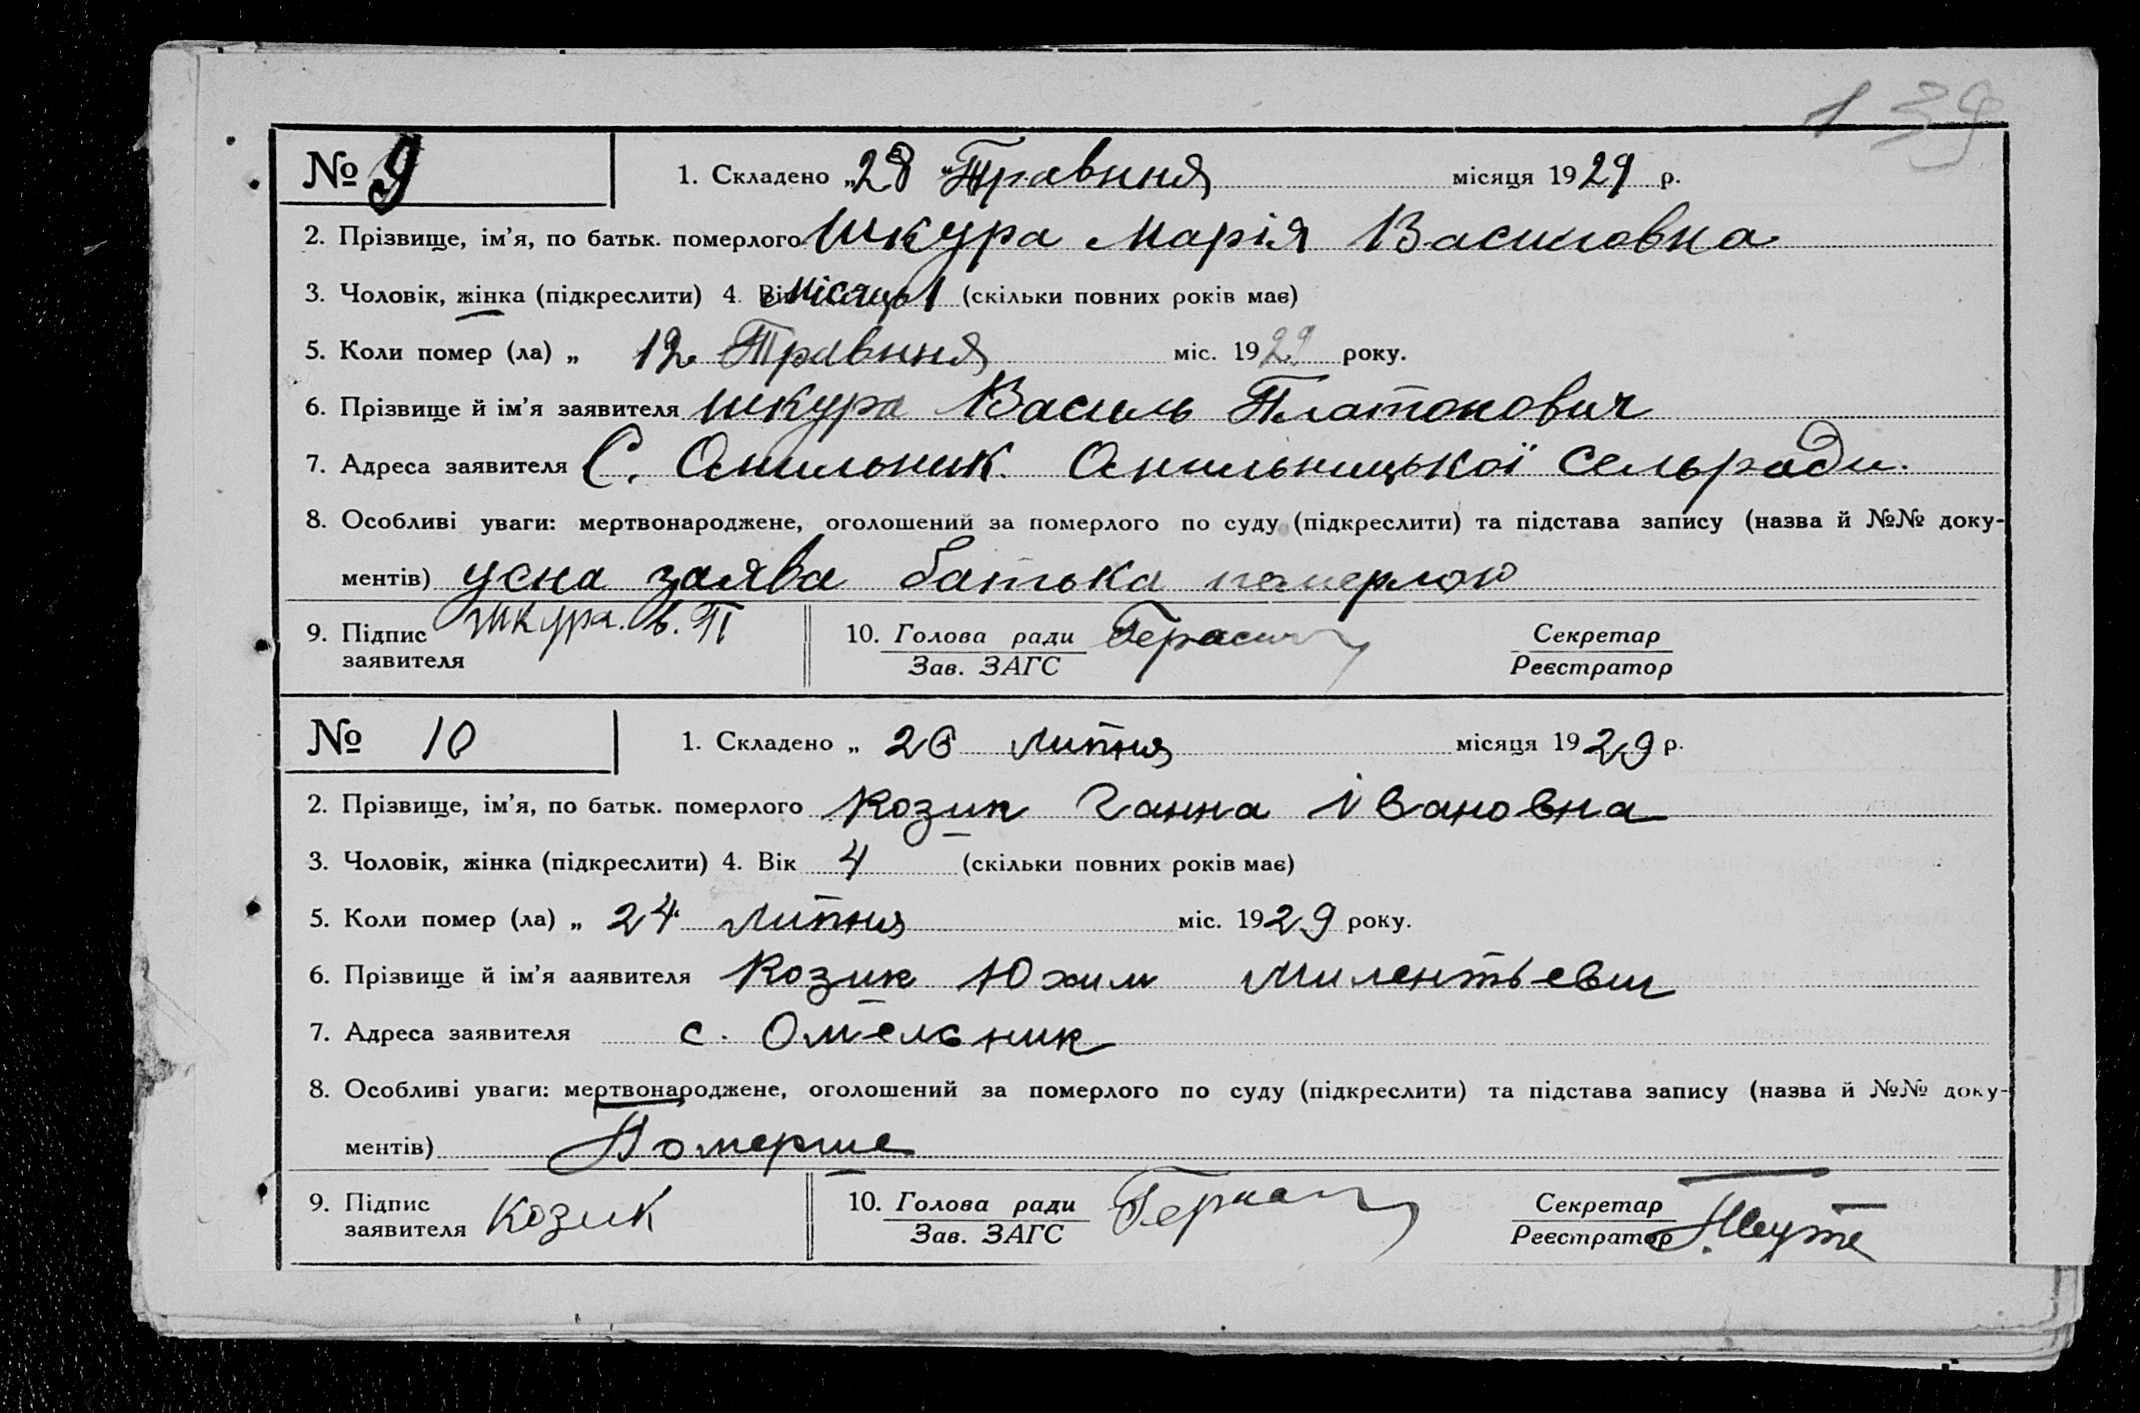 139
№ 9 1. Складено „28 "Травння місяця 1929 р.
2. Прізвище, ім’я, по батьк. померлого Шкура Марія Василовна
3. Чоловік, жінка (підкреслити) 4. Вік місяць 1 (скільки повних років має)
5. Коли помер (ла) „ 12 Травння міс. 1929 року.
6. Прізвище й ім’я заявителя Шкура Василь Платонович
7. Адреса заявителя С. Омильник Омильницької сельради.
8. Особливі уваги: мертвонароджене, оголошений за померлого по суду (підкреслити) та підстава запису (назва й №№ доку-
ментів) усна заява батька
9. Підпис Шкура. В. П 10. Голова ради Секретар
заявителя Зав. ЗАГС Реєстратор
№ 10 1. Складено „ 26 липня місяця 1929 р.
2. Прізвище, ім’я, по батьк. померлого Козик Ганна івановна
3. Чоловік, жінка (підкреслити) 4. Вік 4 (скільки повних років має)
5. Коли помер (ла) „ 24 липня міс. 1929 року.
6. Прізвище й ім’я ааявителя Козик Юхим Милентьевич
7. Адреса заявителя с. Омельник
8. Особливі уваги: мертвонароджене, оголошений за померлого по суду (підкреслити) та підстава запису (назва й №№ доку-
ментів) Померше
9. Підпис Козик 10. Голова ради Секретар
заявителя Зав. ЗАГС Реєстратор